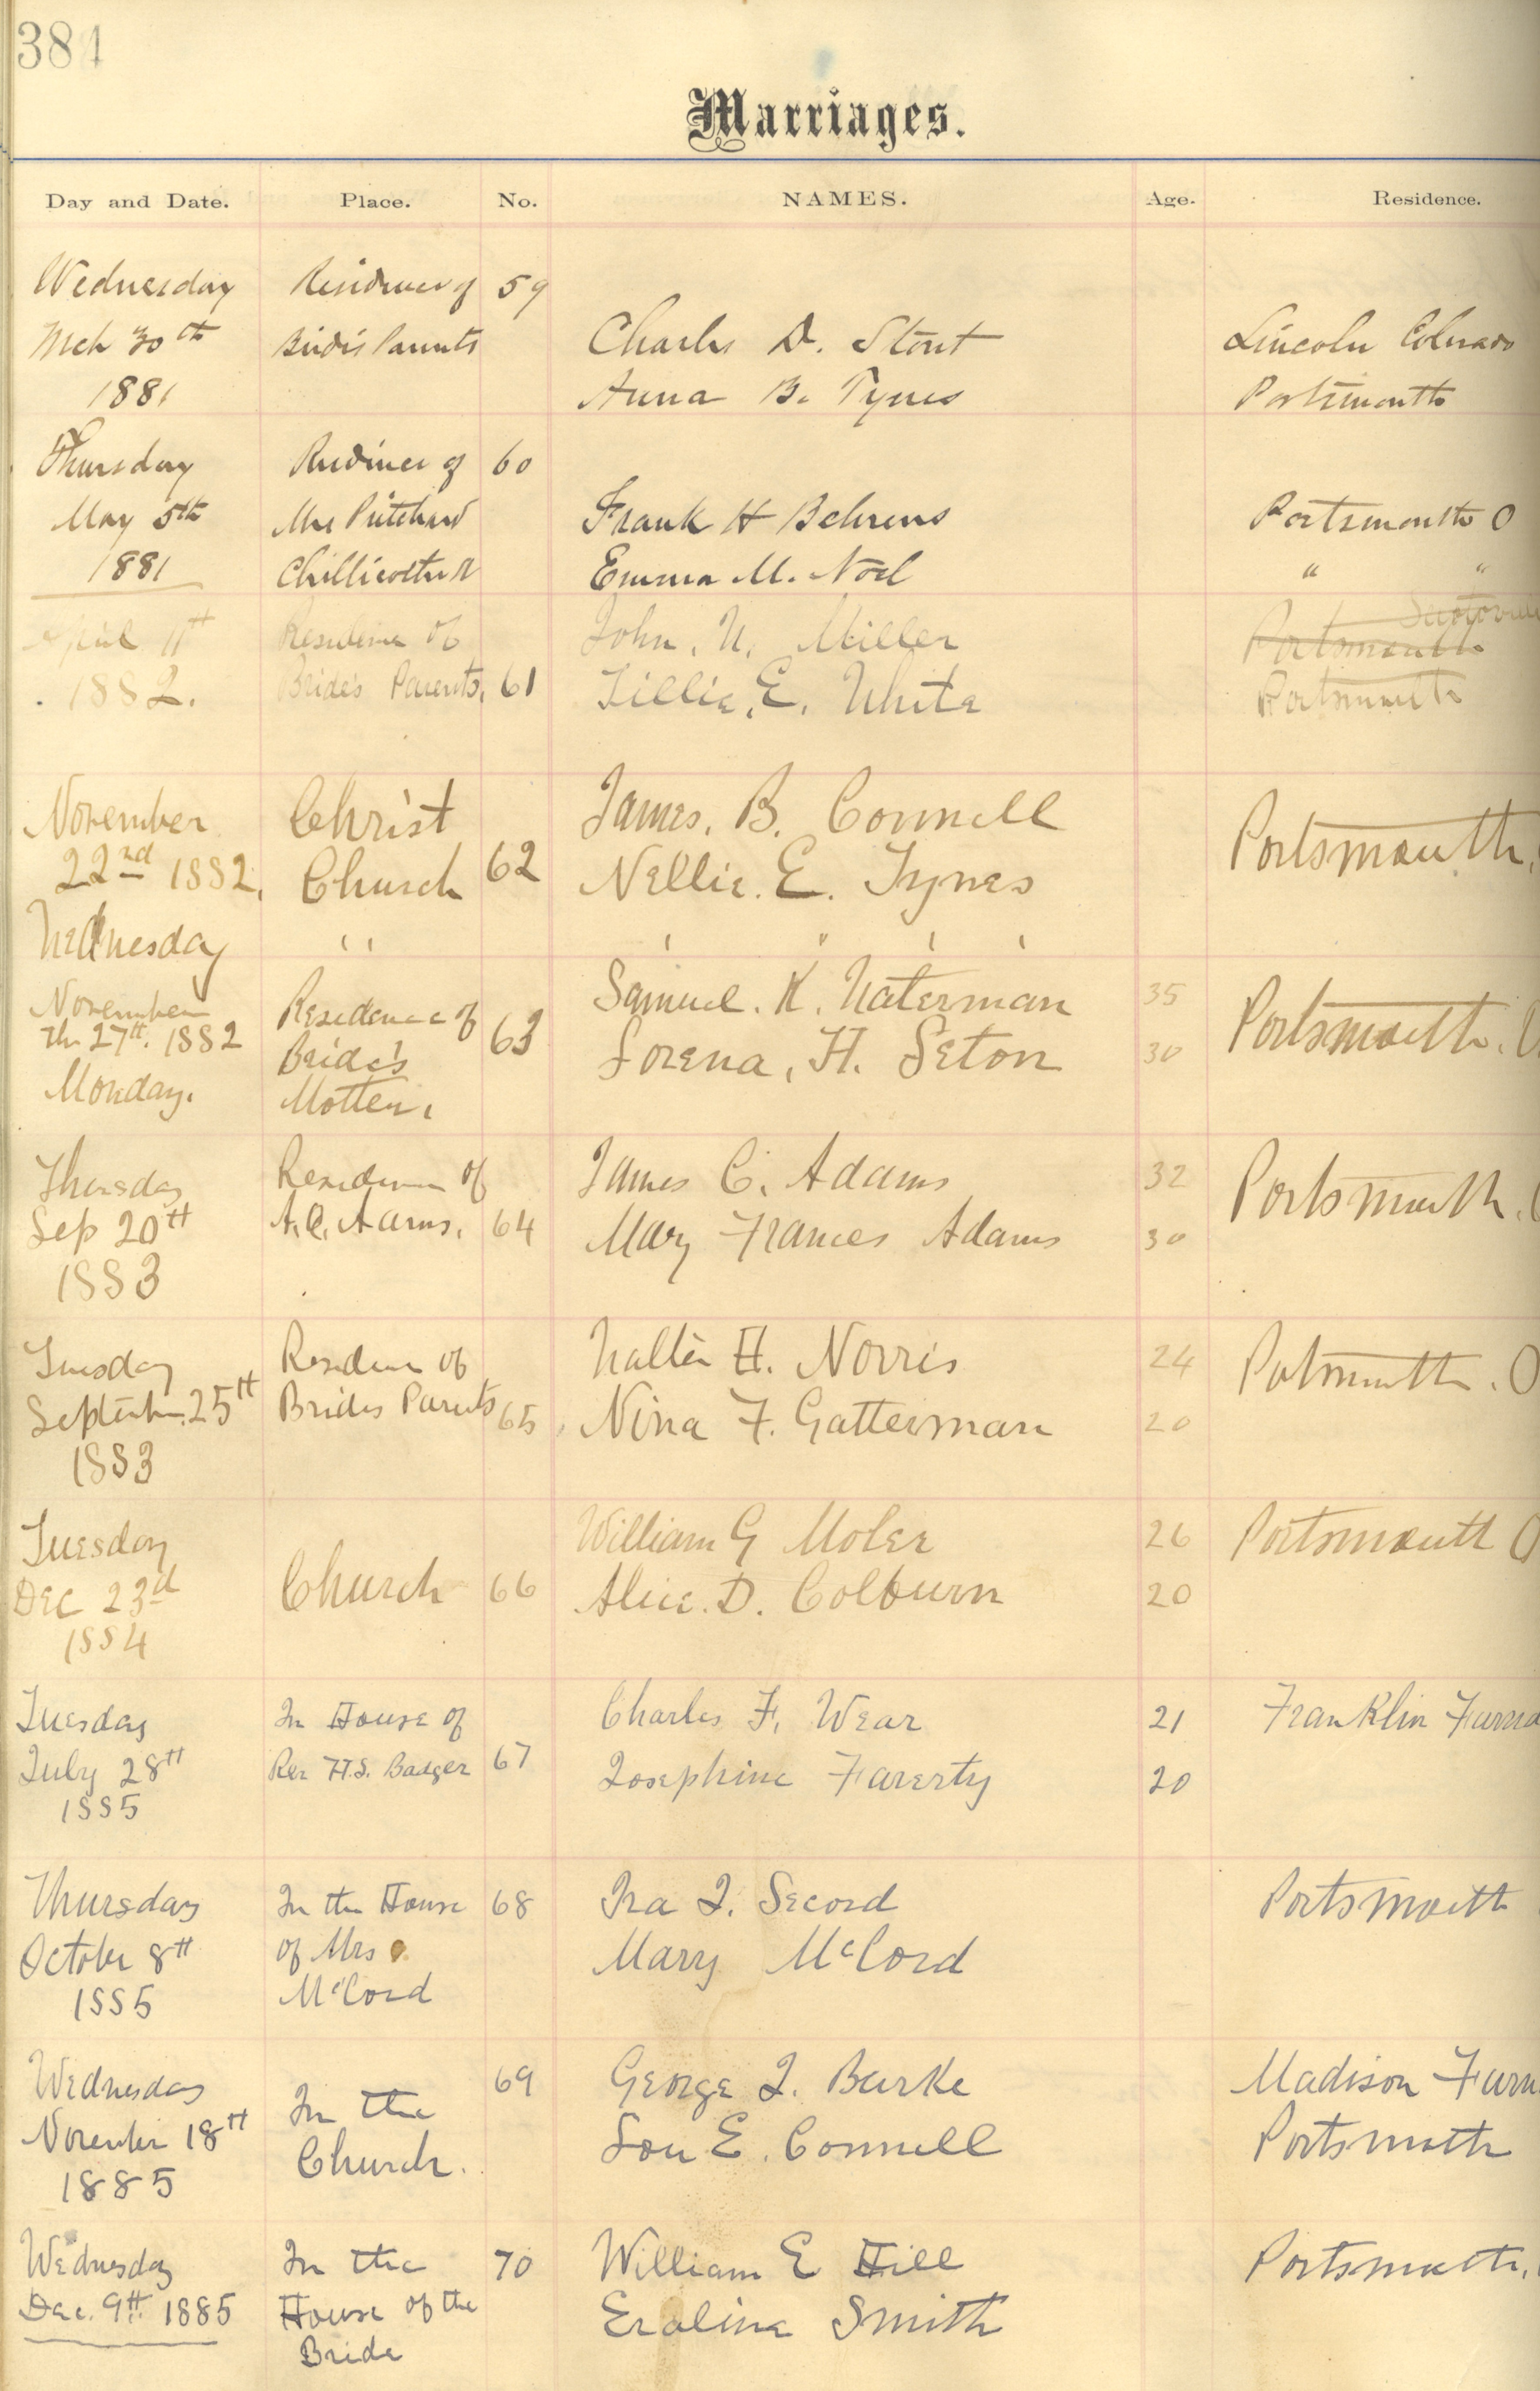 384
Marriages.
Day and Date. Place. No. NAMES. Age. Residence.
Wednesday Residence of 59
Mch 30th Brides Parents Charles D. Stout Lincoln Colorado
1881 Anna B. Tynes Portsmouth
Thursday Residence of 60
May 5th Mrs Pritchard Frank H Behrens Portsmouth O
1881 Chillicothe R Emma M. Noel " "
April 11th Residence of John. N. Miller Portsmouth Sciotoville
1882. Bride's Parents. 61 Lillie. E. White Portsmouth
November Christ James. B. Connell Portsmouth.
22nd 1882. Church 62 Nellie. E. Tynes
Wednesday " ' " ' '
November Residence of Samuel. K. Waterman 35 Portsmouth. O
Th 27th. 1882 Bride's 63 Lorena. H. Seton 30
Monday. Mother.
Thursday Residence of James C. Adams 32 Portsmouth. O
Sep 20th 64 Mary Frances Adams 30
1883
Tuesday Residence of Walter H. Norris 24 Portsmouth. O
September 25th Brides Parents 65 Nina F. Gatterman 20
1883
Tuesday William G Moler 26 Portsmouth O
Dec 23d Church 66 Alice. D. Colburn 20
1884
Tuesday In House of Charles F. Wear 21 Franklin Furna
July 28th Rev H.S. Badger 67 Josephine Faverty 20
1885
Thursday In the House 68 Ira J. Secord Portsmouth
October 8th of Mrs Mary McCord
1885 McCord
Wednesday 69 George J. Burke Madison Furn
November 18th In the Lou E. Connell Portsmouth
1885 Church.
Wednesday In the 70 William E Hill Portsmouth.
Dec. 9th. 1885 House of the Eraline Smith
Bride